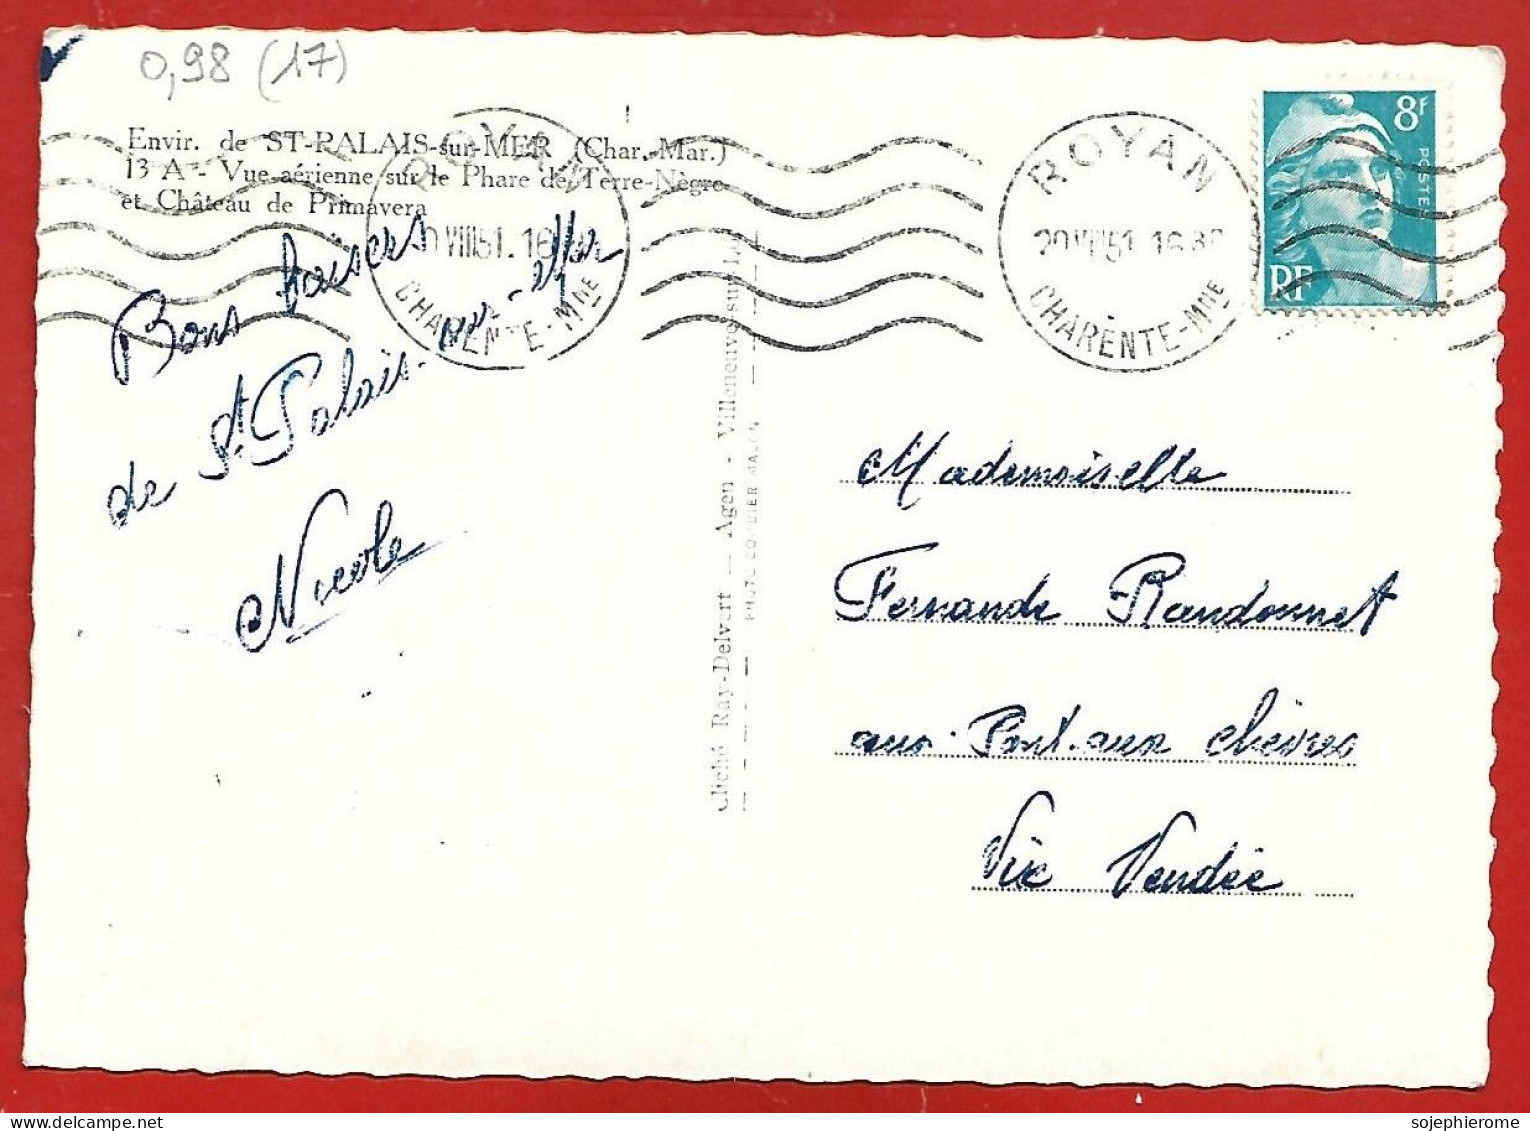 0,98 (17)
Envir. de ST-PALAIS-sur-MER (Char.-Mar.)
13 A - Vue aérienne sur le Phare de Terre-Nègre
et Château de Primavera
ROYAN
VIII 51. 16
CHARENTE-Mne
ROYAN
20 VIII 51 16 30
CHARENTE-Mne
8F
POSTES
RF
Bons baisers
de St Palais-sur-Mer
Nicole
Cliché Ray-Delvert — Agen - Villeneuve sur Lot
PHOTO COMBIER MACON
Mademoiselle
Fernande Randonnet
aux Pont-aux chèvres
Vix Vendée
sojephierome